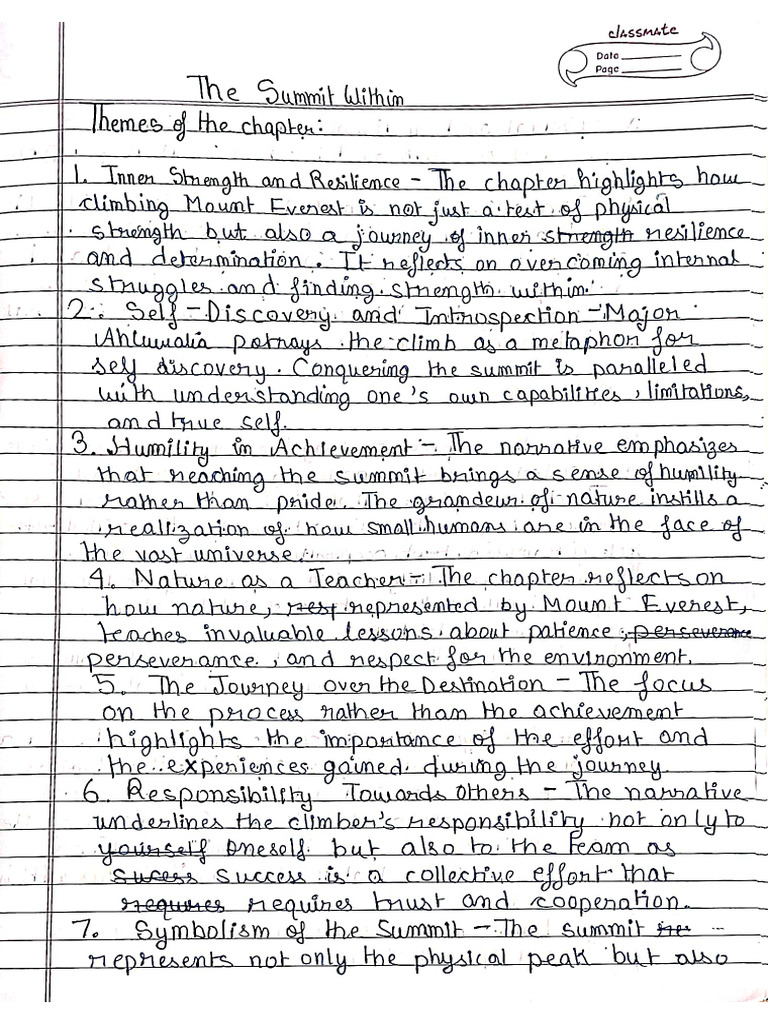 classmate
Date
Page
The Summit Within
Themes of the chapter:
1. Inner Strength and Resilience - The chapter highlights how
climbing Mount Everest is not just a test of physical
strength but also a journey of inner strength resilience
and determination. It reflects on overcoming internal
struggles and finding strength within.
2. Self-Discovery and Introspection - Major
Ahluwalia potrays the climb as a metaphor for
self discovery. Conquering the summit is paralleled
with understanding one's own capabilities, limitations,
and true self.
3. Humility in Achievement - The narrative emphasizes
that reaching the summit brings a sense of humility
rather than pride. The grandeur of nature instills a
realization of how small humans are in the face of
the vast universe.
4. Nature as a Teacher - The chapter reflects on
how nature, represented by Mount Everest,
teaches invaluable lessons about patience, perseverance
perseverance, and respect for the environment.
5. The Journey over the Destination - The focus
on the process rather than the achievement
highlights the importance of the effort and
the experiences gained during the journey.
6. Responsibility Towards Others - The narrative
underlines the climber's responsibility not only to
yourself oneself but also to the team as
sucess success is a collective effort that
requires requires trust and cooperation.
7. Symbolism of the Summit - The summit
represents not only the physical peak but also